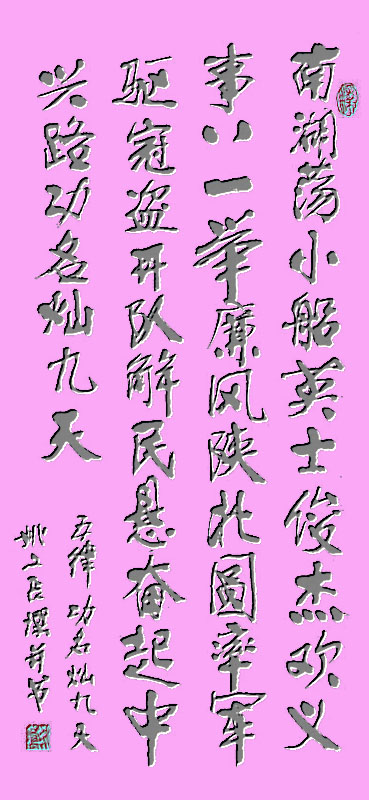 南湖荡小船英士俊杰欢义
事八一举廉风陕北圆率军
驱寇盗再队解民悬奋起中
兴路功名灿九天
五律 功名灿九天
姚文臣撰并书